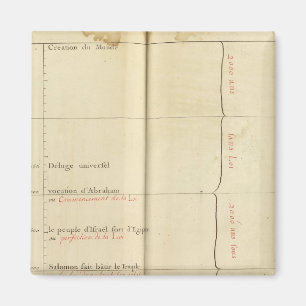 Création du Monde
2000 ans
sans Loi
Déluge universel
vocation d'Abraham
ou Commencement de la Loi
2000 ans sous
le peuple d'Israël sort d'Egip
ou perfection de la Loi
Salomon fait bâtir le Temple